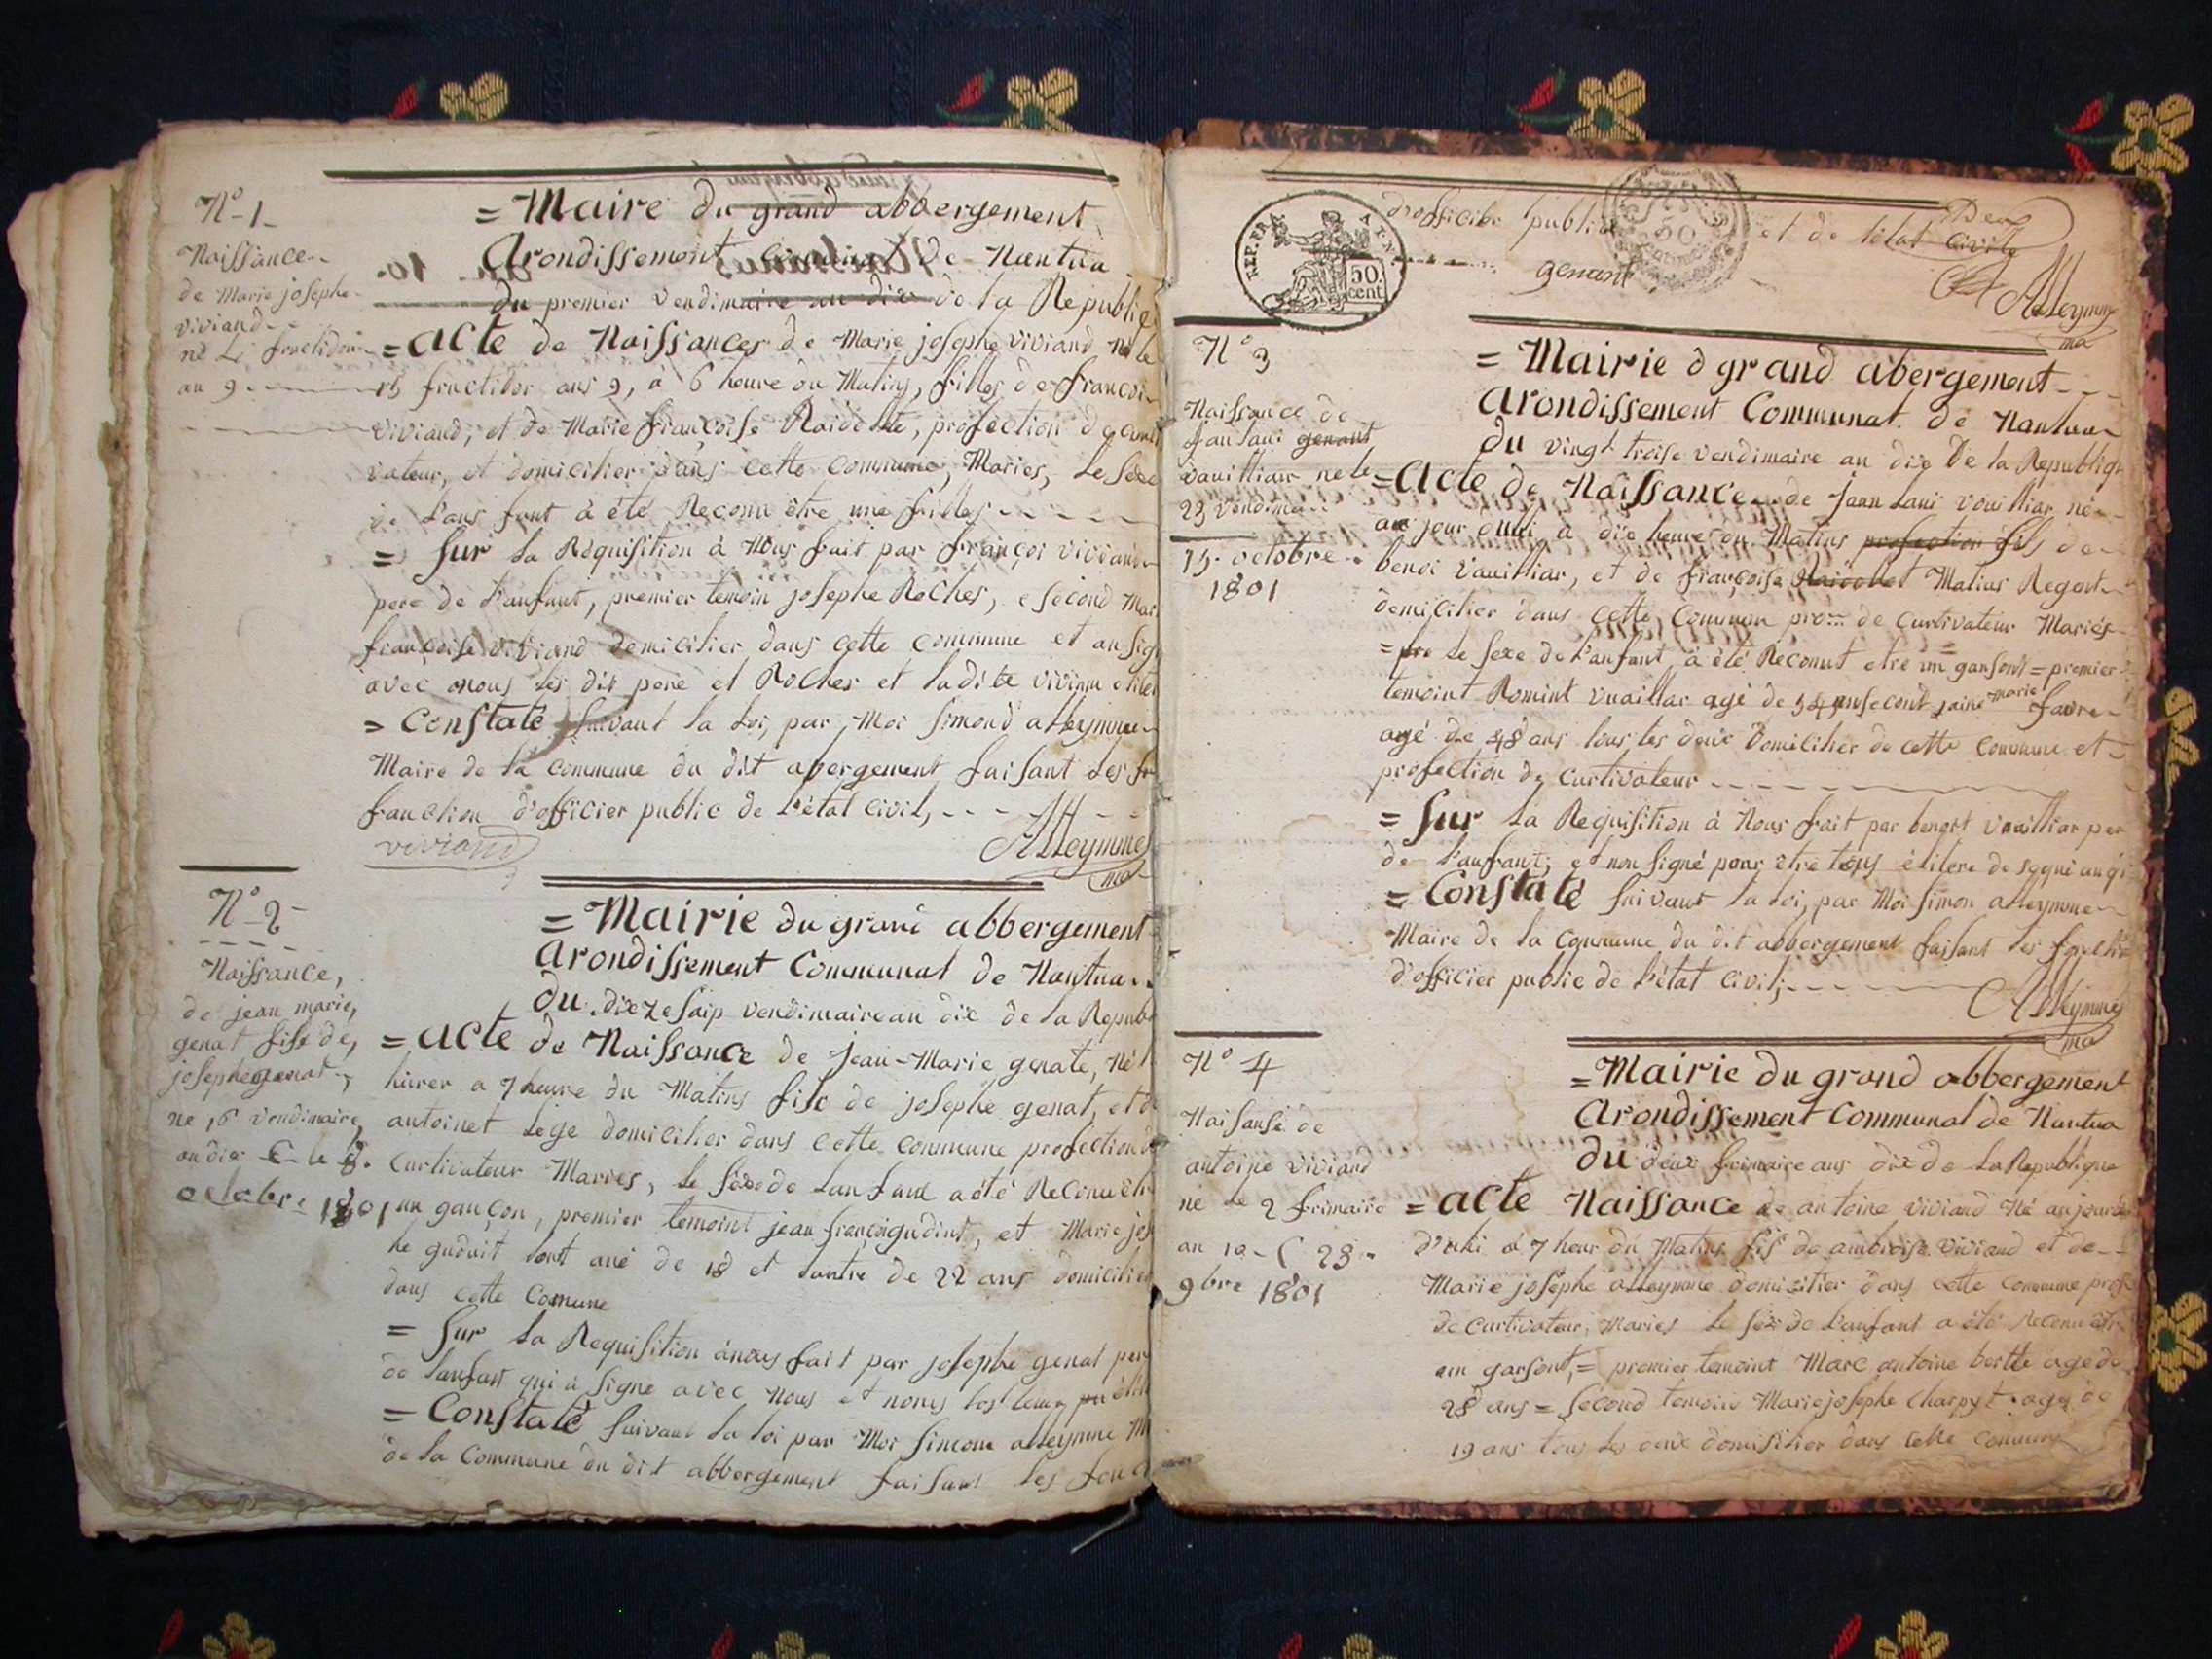 N° 1
Naissance
de Marie josephe
viviand
né Le fructidor
an 9
= Maire du grand abbergement
Arondissement Communal de Nantua
du premier vendimaire an dix de la Republiq
= acte de Naissances de Marie josephe viviand né le
15 fructidor ans 9, à 6 heure du Matins, filles de françoi
viviand, et de Marie françoise, profection de
vateur, et domicilier dans cette commune, Maries, Le Sexe
de L'anfant à été Reconu être une filles
= Sur La Réquisition à Nous fait par françoi viviand
pere de L'anfant, premier temoin josephe Roches, e second Mar
françoise viviand domicilier dans cette commune et on sig
avec nous les dit pere et Roches et ladite viviand
= Constaté Suivant la Loi, par Moi Simond alleymme
Maire de la commune du dit abergement faisant les
fonction d'officier public de L'état civil,
viviand
Alleymme
ma
N° 2
Naissance,
de jean marie,
genat fils de,
josephe genat
né 16 vendimaire,
an dix C. le 8.
octobre 1801
= Mairie du grand abbergement
Arondissement Communal de Nantua
du dix ze saip vendimaire an dix de la Republ
= acte de Naissance de jean-Marie genate, Né
hürer a 7 heure du Matins fils de josephe genat, et d
antoinet Lege domicilier dans cette commune profection d
Curtivateur Maries, le Sexe de Lanfant a été Reconu
un garçon, premier temoint jean, et Marie jos
he sont agé de 18 et Lautre de 22 ans domicilier
dans cette Comune
= Sur La Requisition ànous fait par josephe genat per
de Lanfant qui à Signé avec nous et
= Constaté Suivant la Loi par Moi Simon alleymme M
de la Commune du dit abbergement faisant les fonc
d'officier public et de létat Civile
genant
Alleymme
ma
REP. FRA
50.
cent.
N° 3
Naissance de
jan Laui genant
vauilliar né le
23 vendima
15. octobre
1801
= Mairie d grand abergement
Arondissement Communat. de Nantua
du vingt troise vendimaire an dix De la Republiq
= Acte de Naissance de jean Laui vouilliar né
au jour duui à dix heure du Matins profection fils de
benoi vauilliar, et de françoise Matias Regent
domicilier dans cette Commun pro de Curtivateur Mariés
= Le Sexe de L'anfant à été Reconut etre un gansont = premier
temoint Romint vuaillar agé de 34 ans secont jaine marie favre
agé de 48 ans tous les deux Domicilier de cette commune et
profection de Curtivateur
= Sur La Requisition à Nous fait par benoit vuailliar per
de L'anfant; et non signé pour être
= Constaté Suivant la Loi, par Moi Simon alleymme
Maire de la Commune du dit abbergement faisant les
d'officier public de L'état Civil,
Alleymme
ma
N° 4
Naisanse de
antoine viviand
né le 2 frimaire
an 10 C 23
9bre 1801
= Mairie du grand abbergement
Arondissement Communal de Nantua
du deux frimaire ans dix de La Republique
= acte Naissance de antoine viviand Né aujourd
d'uhi à 7 heur du Matins fis de ambroise viviand et de
Marie josephe alleymme domicilier dans cette commune prof
de Curtivateur, Maries Le Sexe de L'anfant a été Reconu etr
un garsont, = premier temoint Marc antoine bertte age de
28 ans = Second temoin Marie josephe Charpyt age de
19 ans tous les deux domisilier dans cette Commune